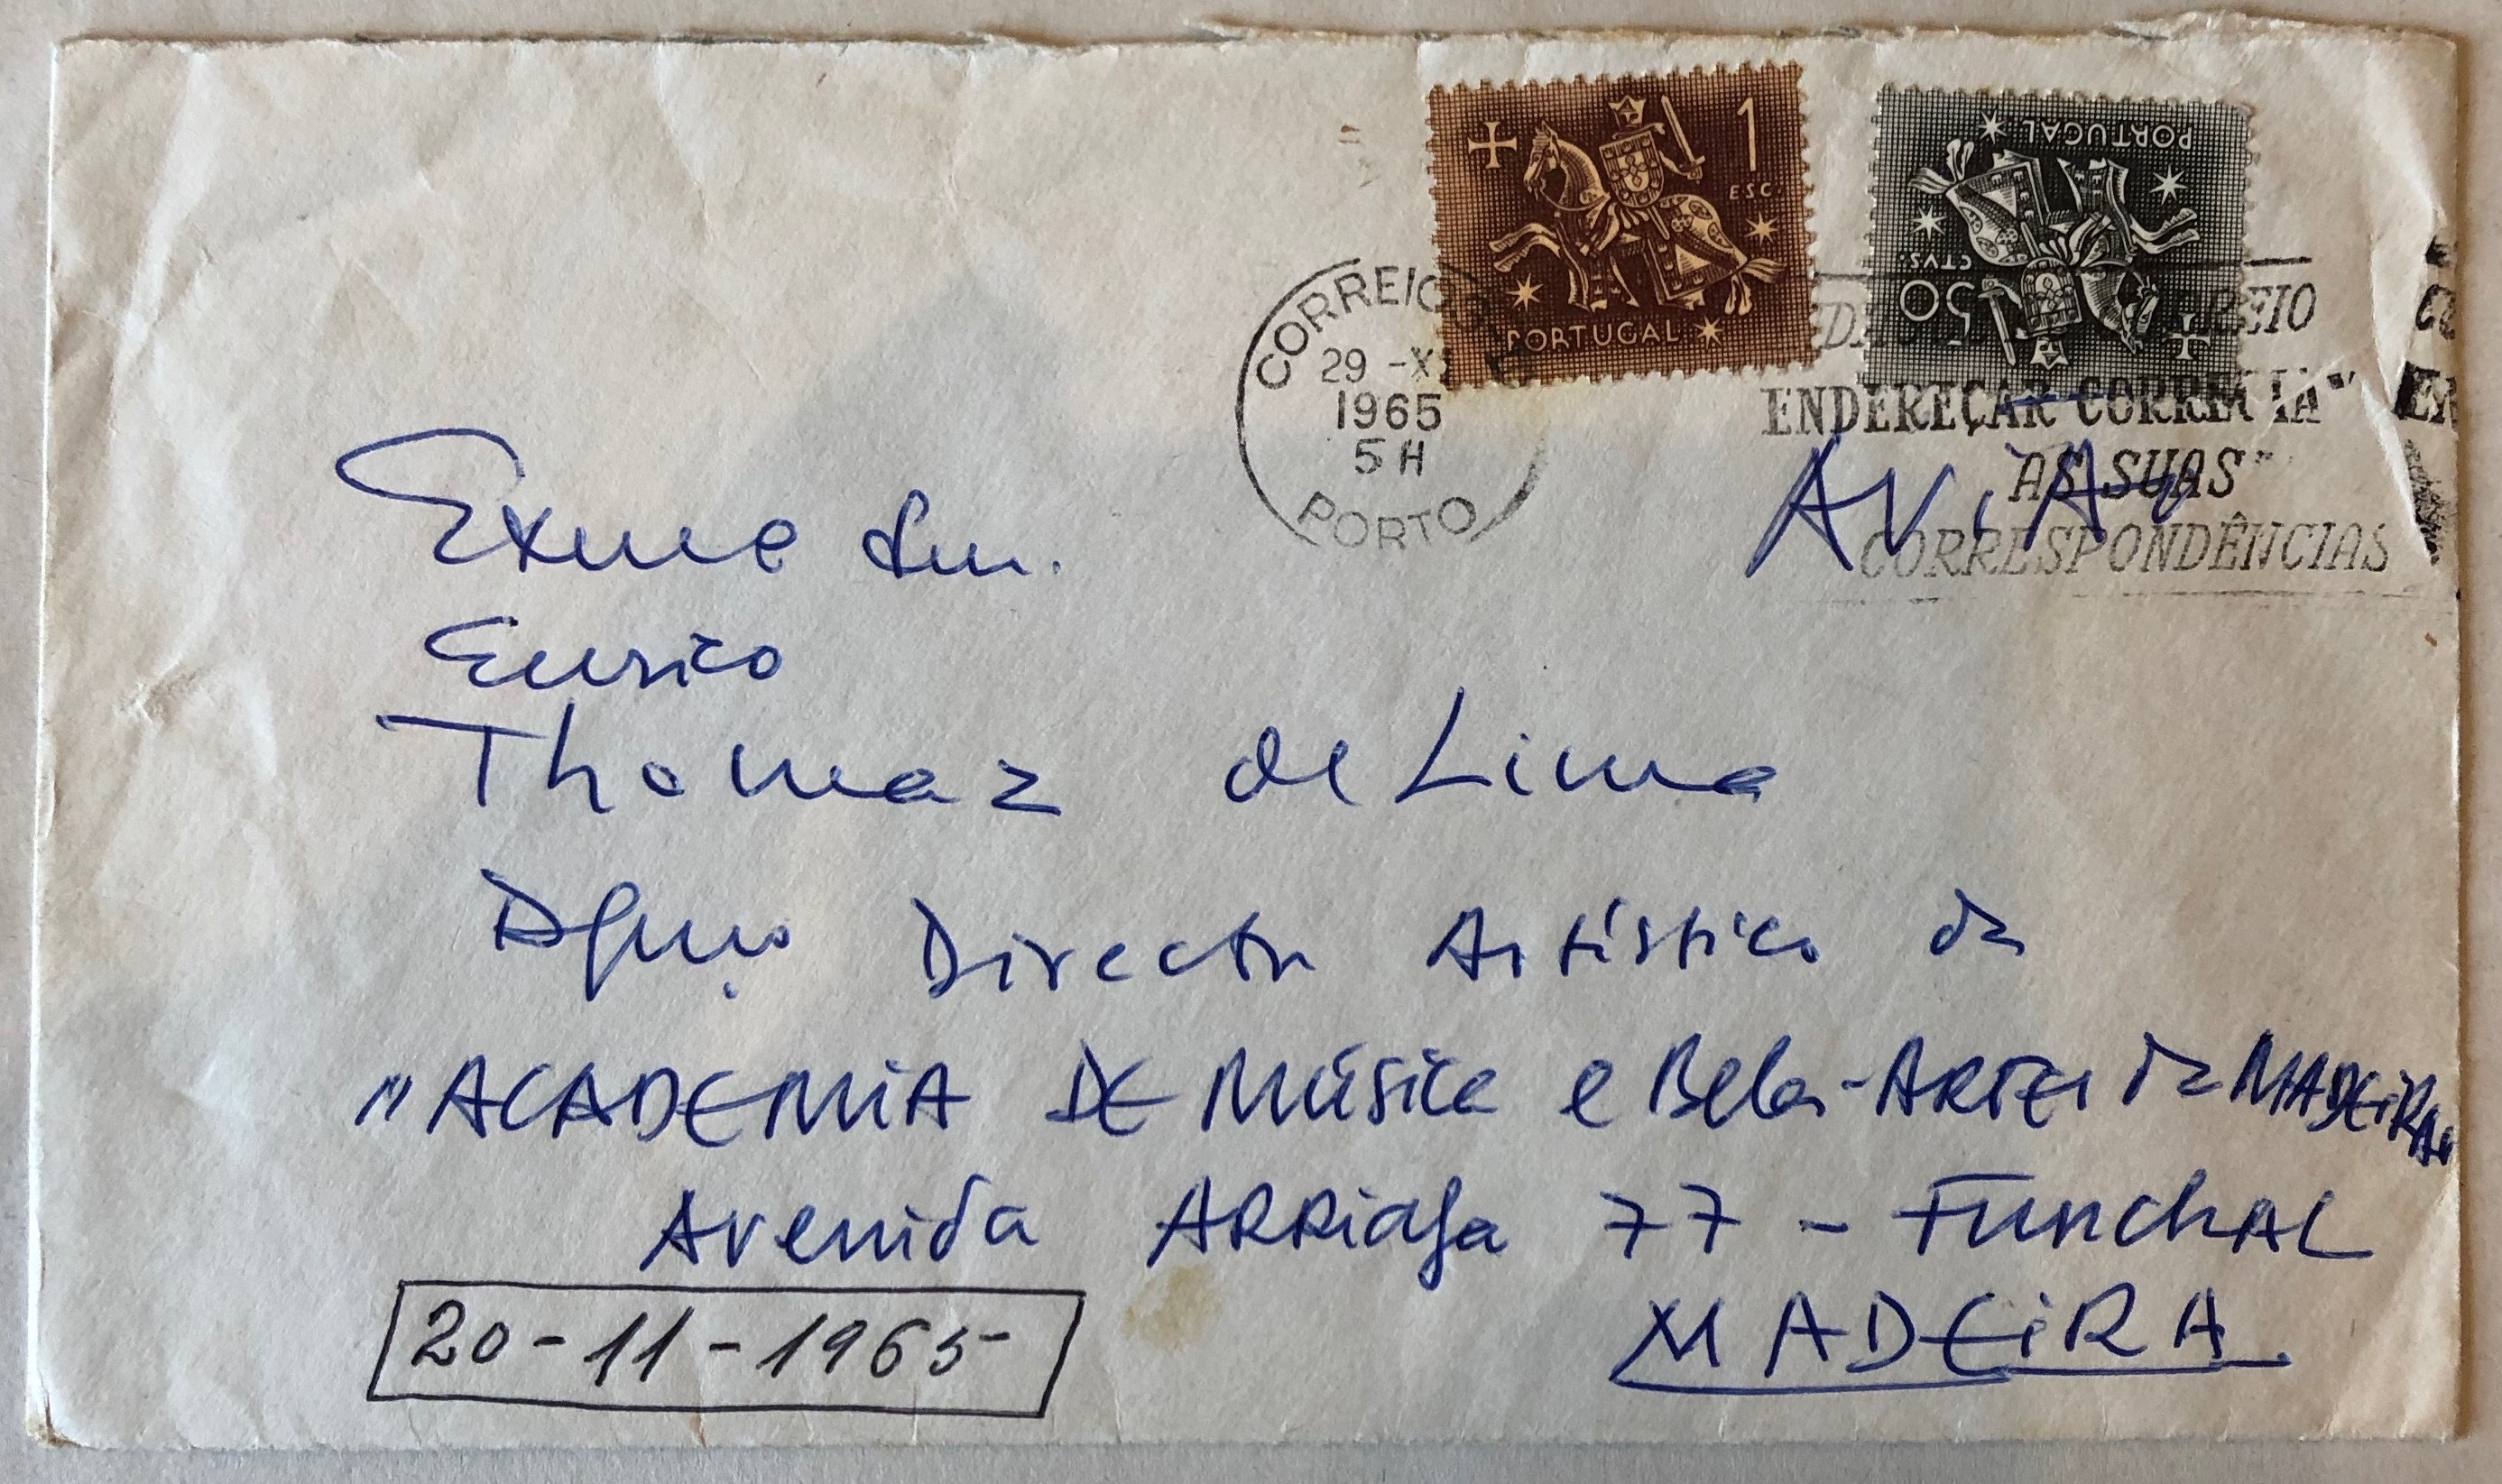 1
ESC.
PORTUGAL
PORTUGAL
50
CTVS.
CORREIO
29 -XI
1965
5 H
PORTO
CORREIO
ENDEREÇAR CORRECTA
AS SUAS"
CORRESPONDÊNCIAS
AViÃo
Exmo Snr.
Eurico
Thomaz de Lima
Dgmo. Director Artístico da
"ACADEMiA DE Música e Belas-ARTEs da MADEiRA"
Avenida ARRiaga 77 - FunchAL
MADEiRA
20-11-1965